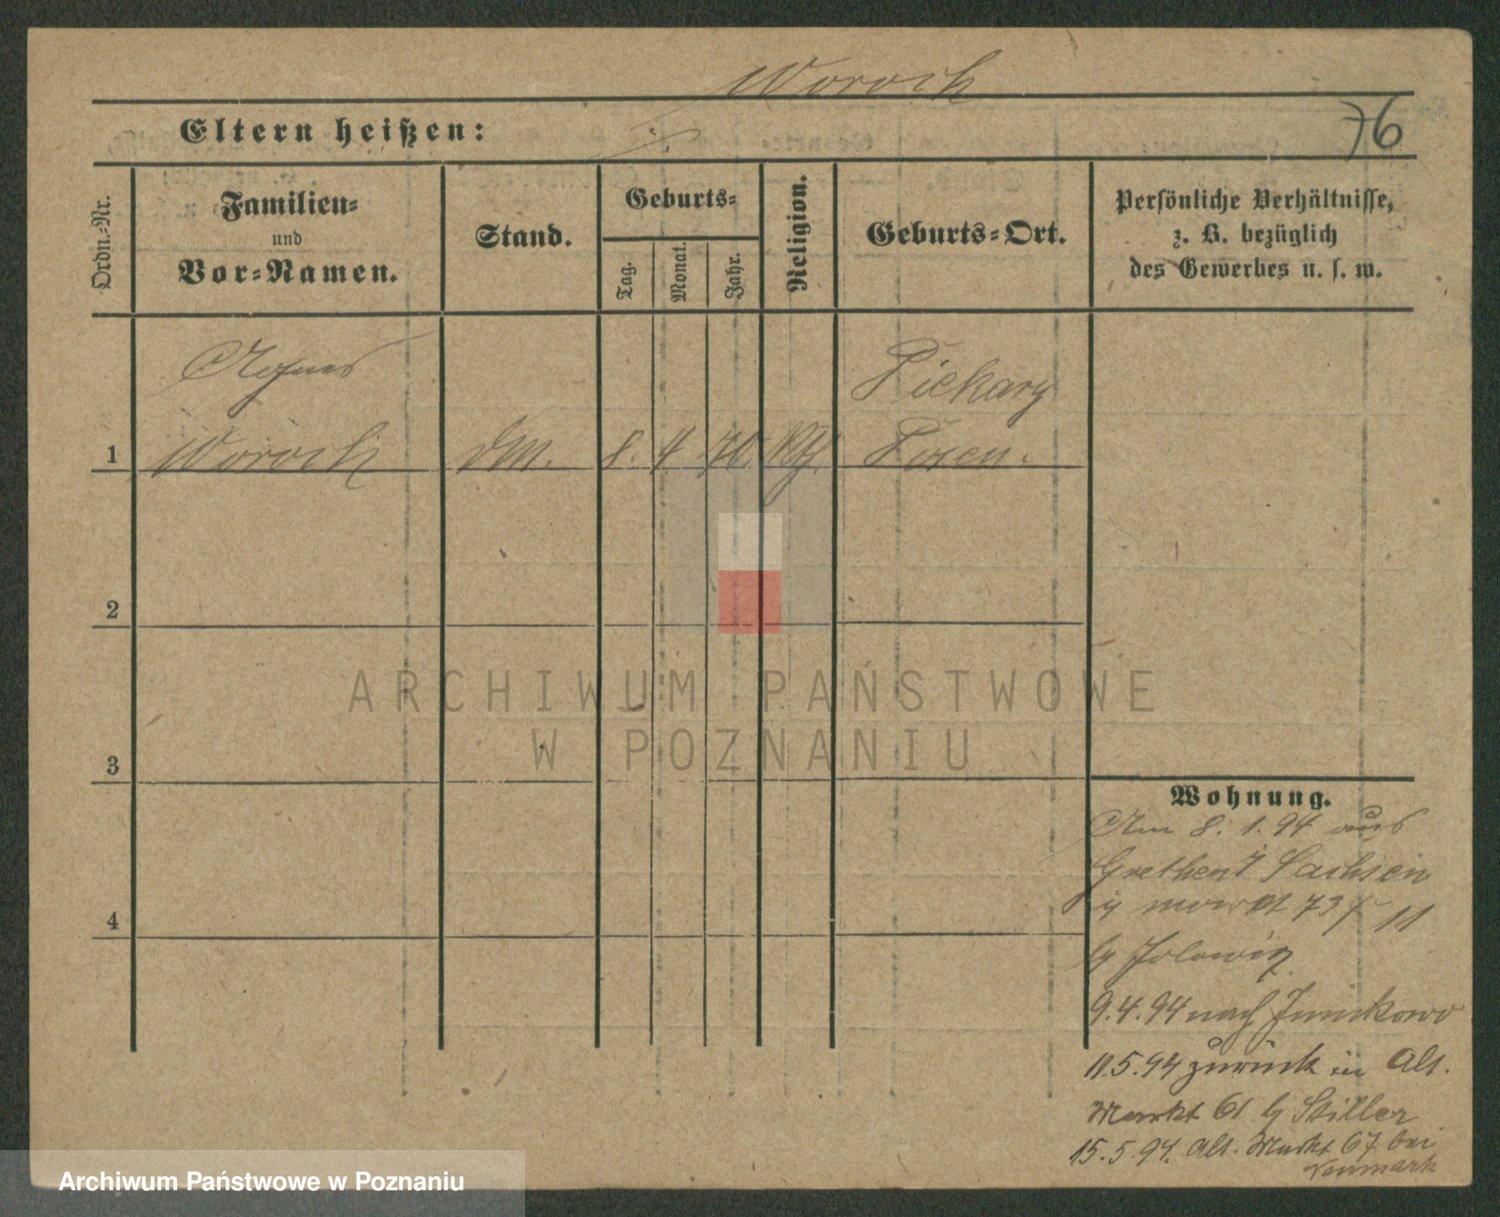 Woroch
Eltern heißen:
76
Ordn.-Nr.
Familien-
und
Vor-Namen.
Stand.
Geburts-
Tag.
Monat.
Jahr.
Religion.
Geburts-Ort.
Persönliche Verhältnisse,
z. B. bezüglich
des Gewerbes u. s. w.
Agnes
Piekary
1 Woroch DM. 8. 4 70. Kth. Posen.
2
3
4
ARCHIWUM PAŃSTWOWE
W POZNANIU
Wohnung.
Am 8. 1. 94 aus
Grethen Sachsen
markt 73 11
b/ Jolowiz
9.4.94 nach Junikowo
11.5.94 zurück in Alt.
Markt 61 b/ Stiller
15.5.94. Alt. Markt 67 bei
Neumark
Archiwum Państwowe w Poznaniu